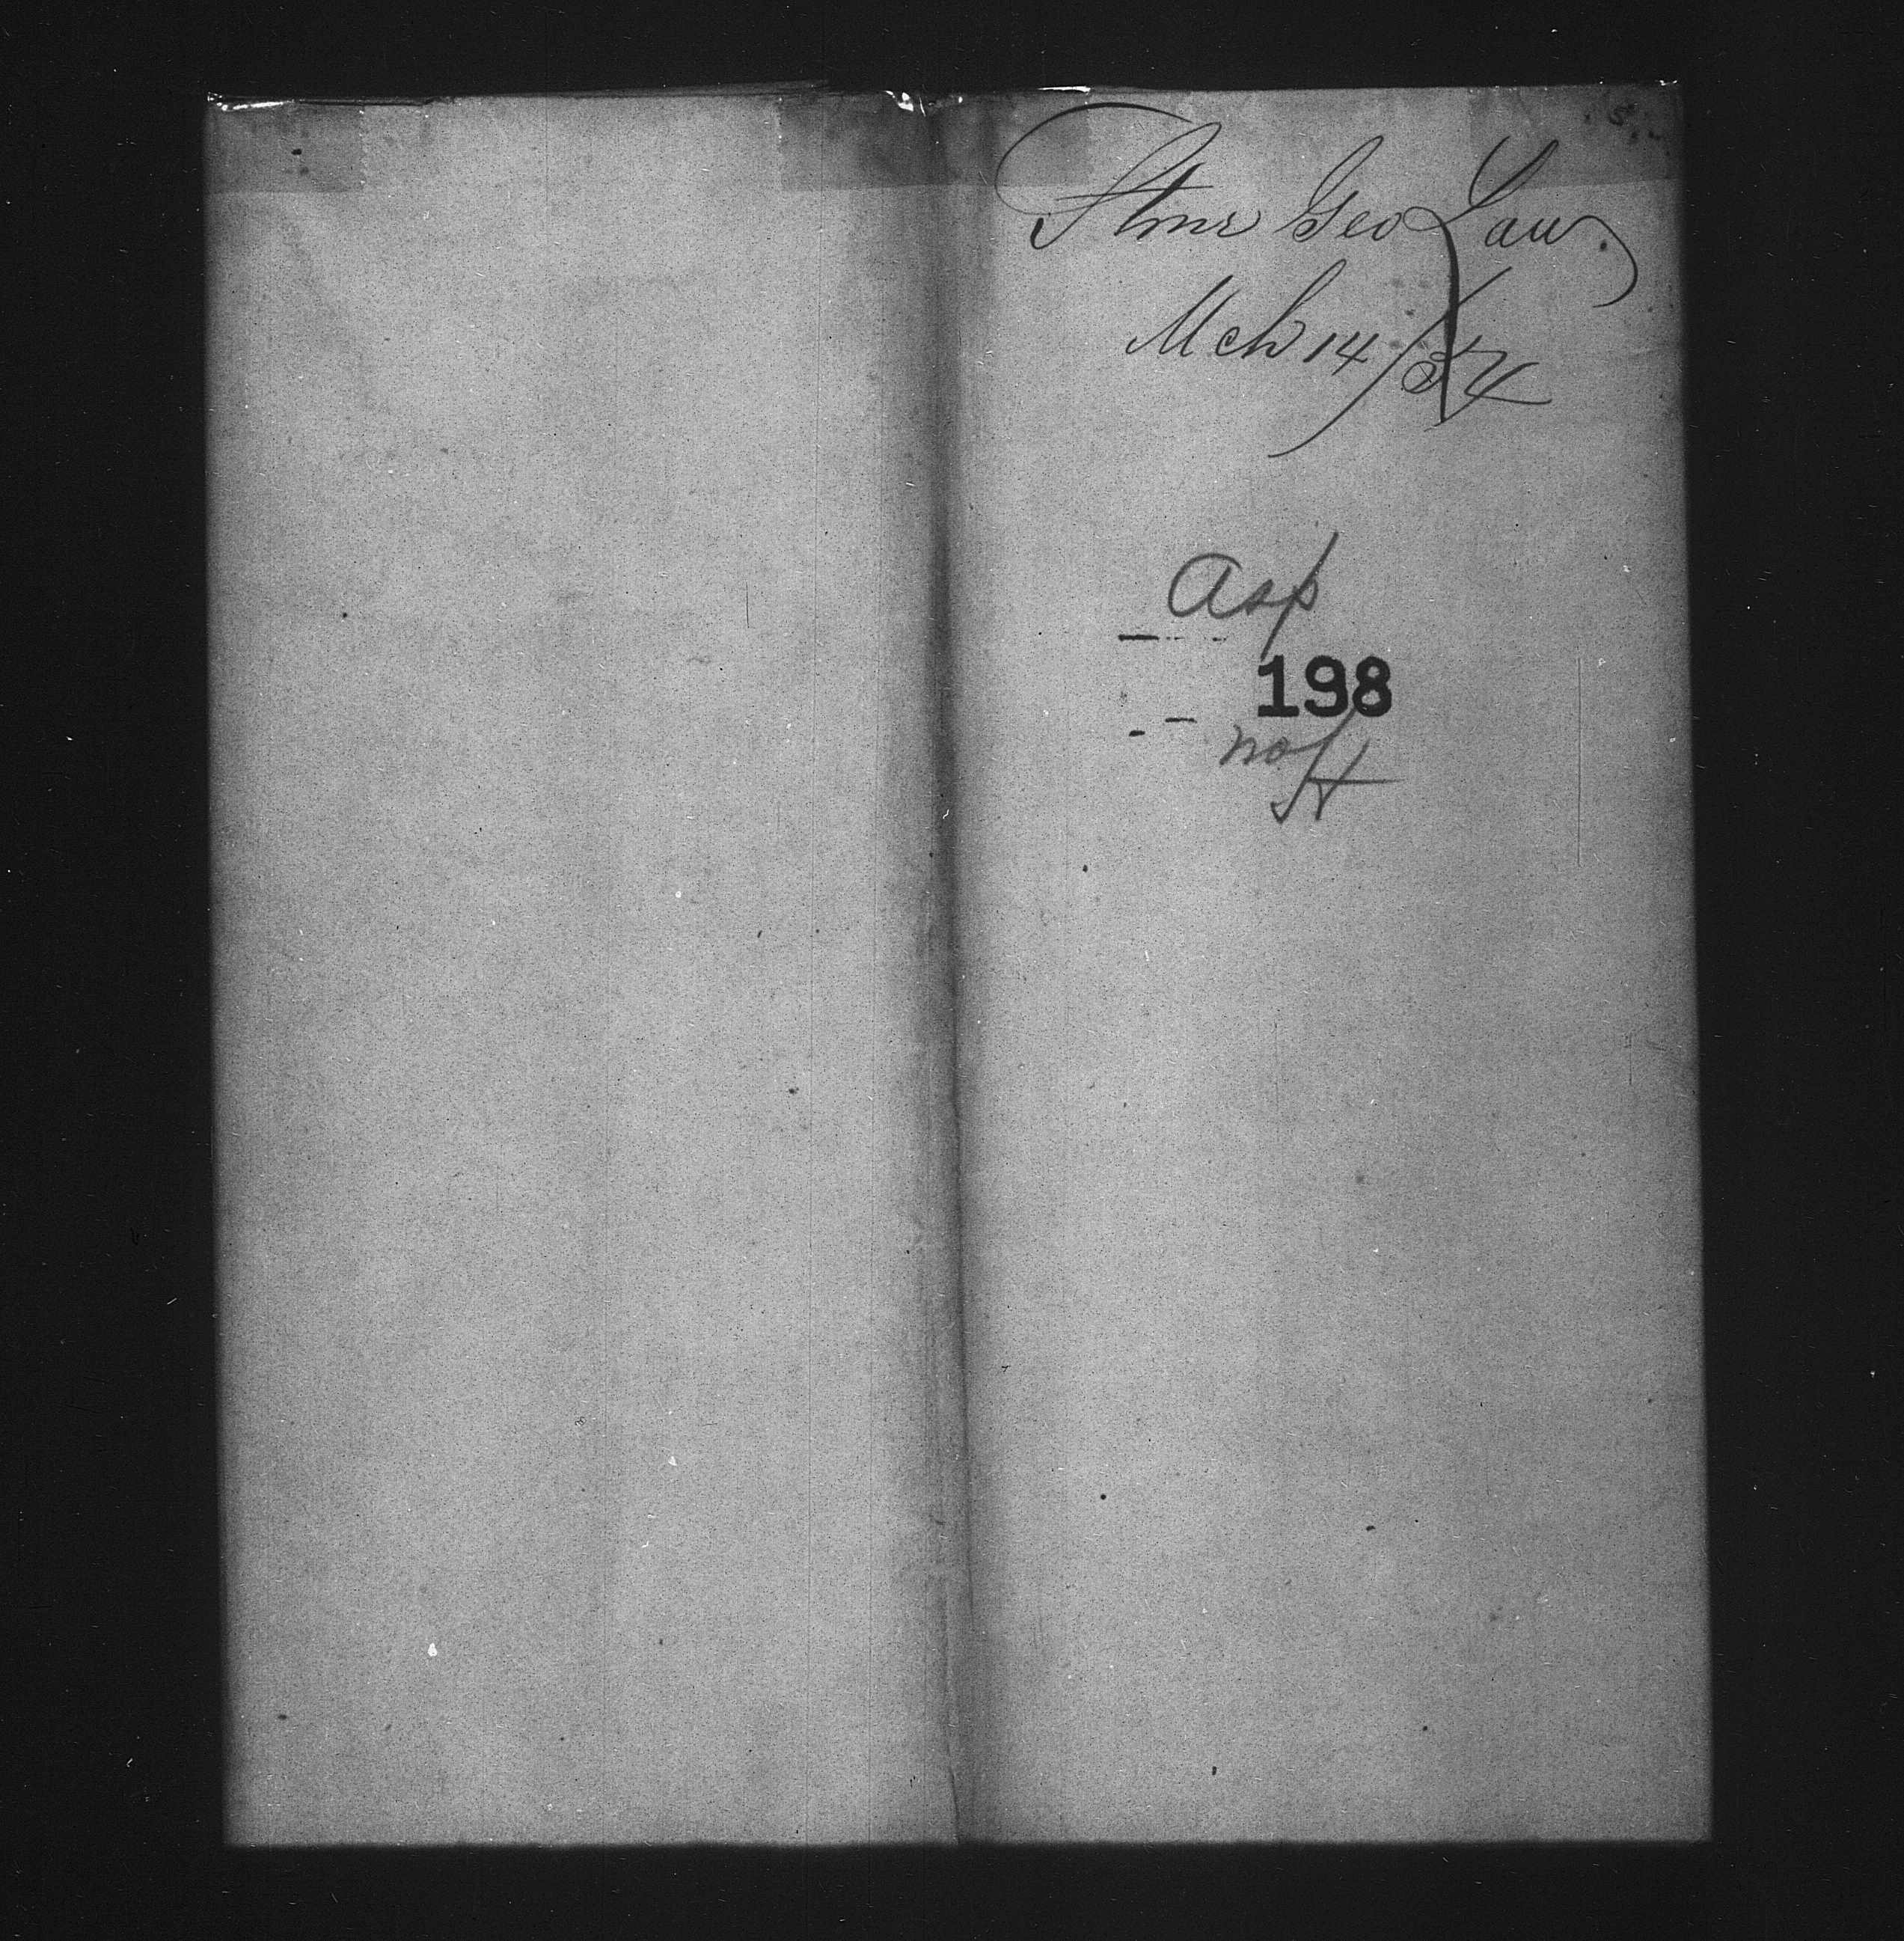 Stmr Geo Law.
Mch 14/54
Asp
198
no H